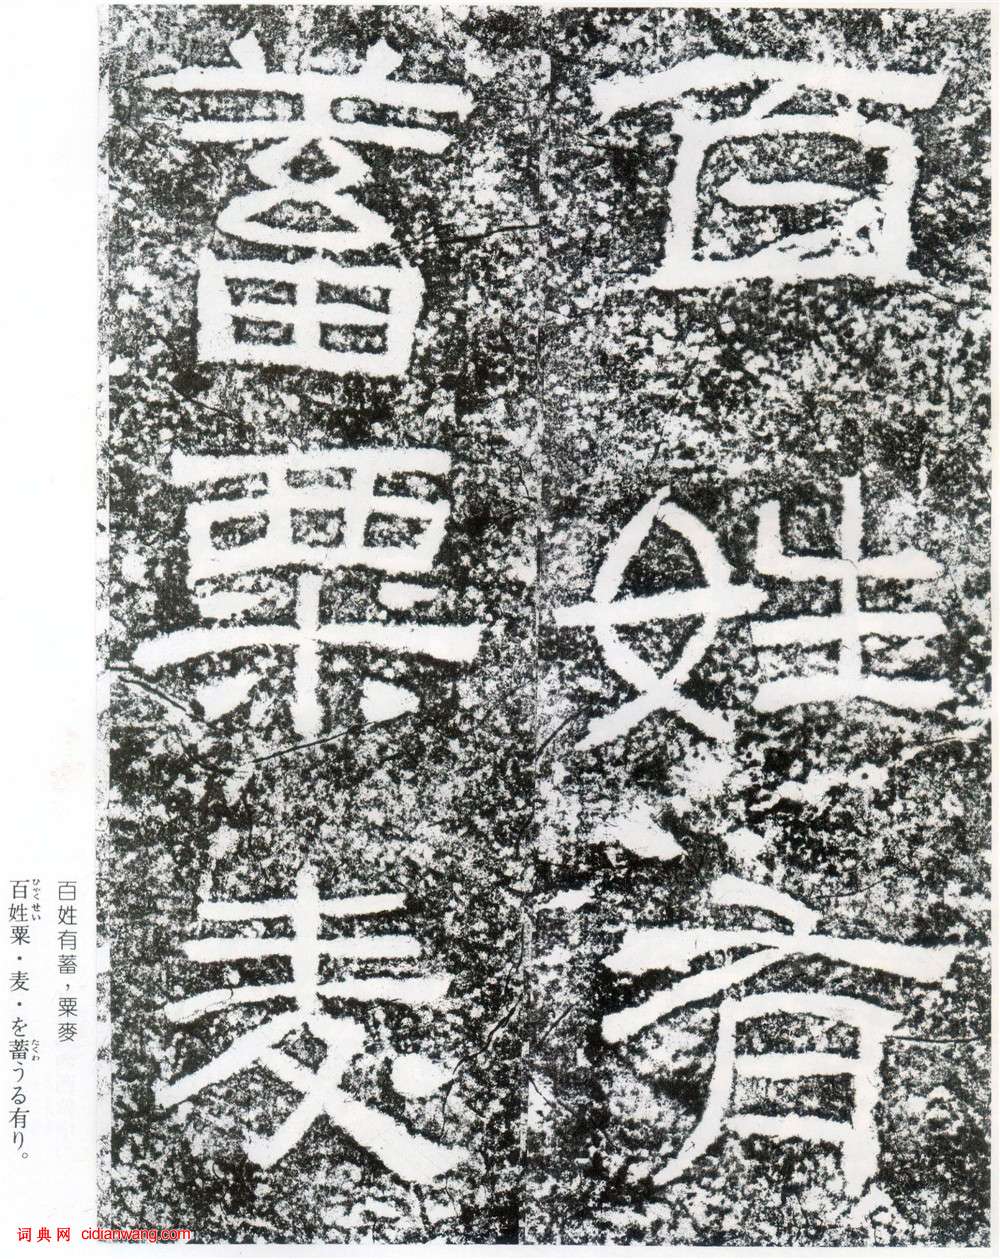 百姓有
蓄粟麦
百姓有蓄，粟麥
ひゃくせい　たくわ
百姓粟・麦・を蓄うる有り。
词典网 cidianwang.com